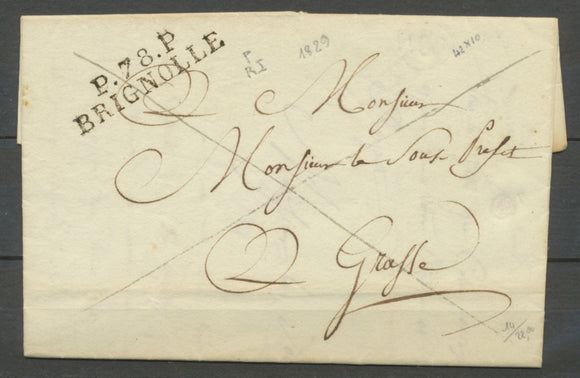 P.78.P
BRIGNOLLE
P
R I
1829
42x10
A Monsieur
Monsieur le Sous Prefet
A Grasse